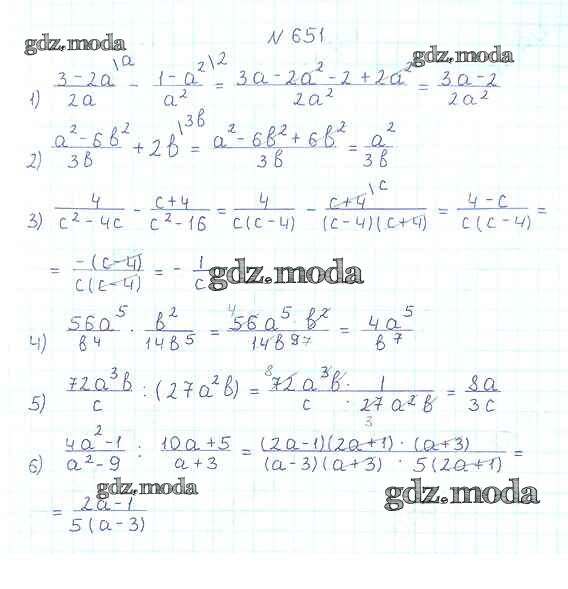 N 651
gdz.moda gdz.moda
1) (3-2a)/(2a) \a - (1-a²)/(a²) \2 = (3a-2a²-2+2a²)/(2a²) = (3a-2)/(2a²)
2) (a²-6b²)/(3b) + 2b \3b = (a²-6b²+6b²)/(3b) = a²/(3b)
3) 4/(c²-4c) - (c+4)/(c²-16) = 4/(c(c-4)) - (c+4)/((c-4)(c+4)) \c = (4-c)/(c(c-4)) =
= (-(c-4))/(c(c-4)) = - 1/c gdz.moda
4) (56a⁵)/(b⁴) · (b²)/(14b⁵) = (⁴56a⁵ · b²)/(14b⁹⁷) = (4a⁵)/(b⁷)
5) (72a³b)/c : (27a²b) = (⁸72a³b · 1)/(c · 27₃a²b) = (8a)/(3c)
6) (4a²-1)/(a²-9) : (10a+5)/(a+3) = ((2a-1)(2a+1) · (a+3))/((a-3)(a+3) · 5(2a+1)) =
gdz.moda gdz.moda
= (2a-1)/(5(a-3))